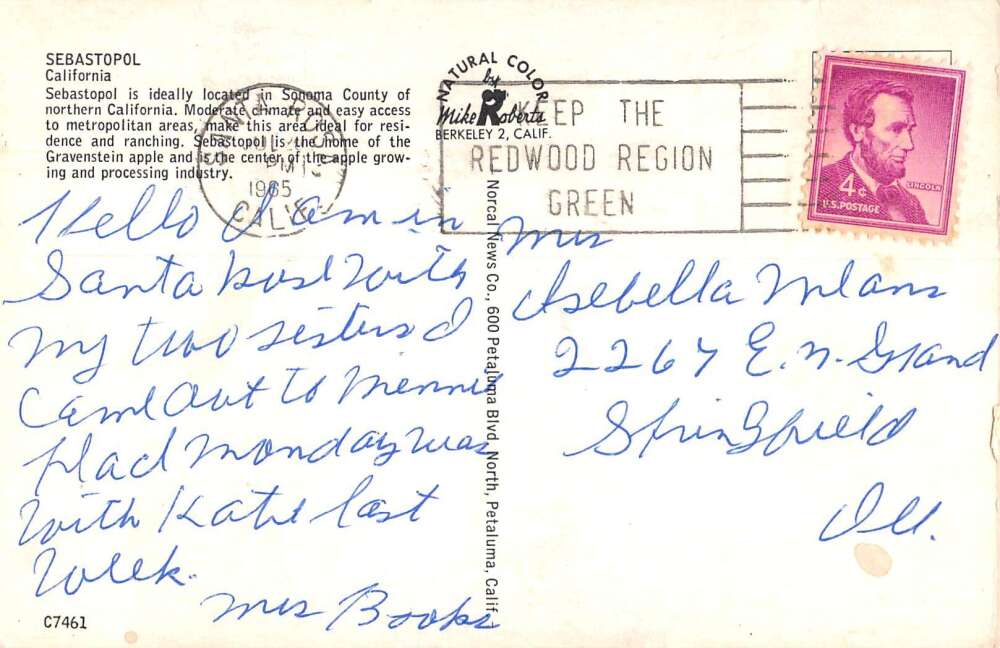 SEBASTOPOL
California
Sebastopol is ideally located in Sonoma County of
northern California. Moderate climate and easy access
to metropolitan areas, make this area ideal for resi-
dence and ranching. Sebastopol is the home of the
Gravenstein apple and is the center of the apple grow-
ing and processing industry.
NATURAL COLOR
by
Mike Roberts
BERKELEY 2, CALIF.
SANTA ROSA
PM
1965
CALIF.
KEEP THE
REDWOOD REGION
GREEN
4¢
LINCOLN
U.S. POSTAGE
Hello I am in
Santa Rose with
my two sisters I
came out to Mennie
plad Monday was
with Katie last
Week.
Mrs Books
Norcal News Co., 600 Petaluma Blvd. North, Petaluma, Calif.
Mrs
Isebella
2267 E. N. Grand
Springfield
Ill.
C7461